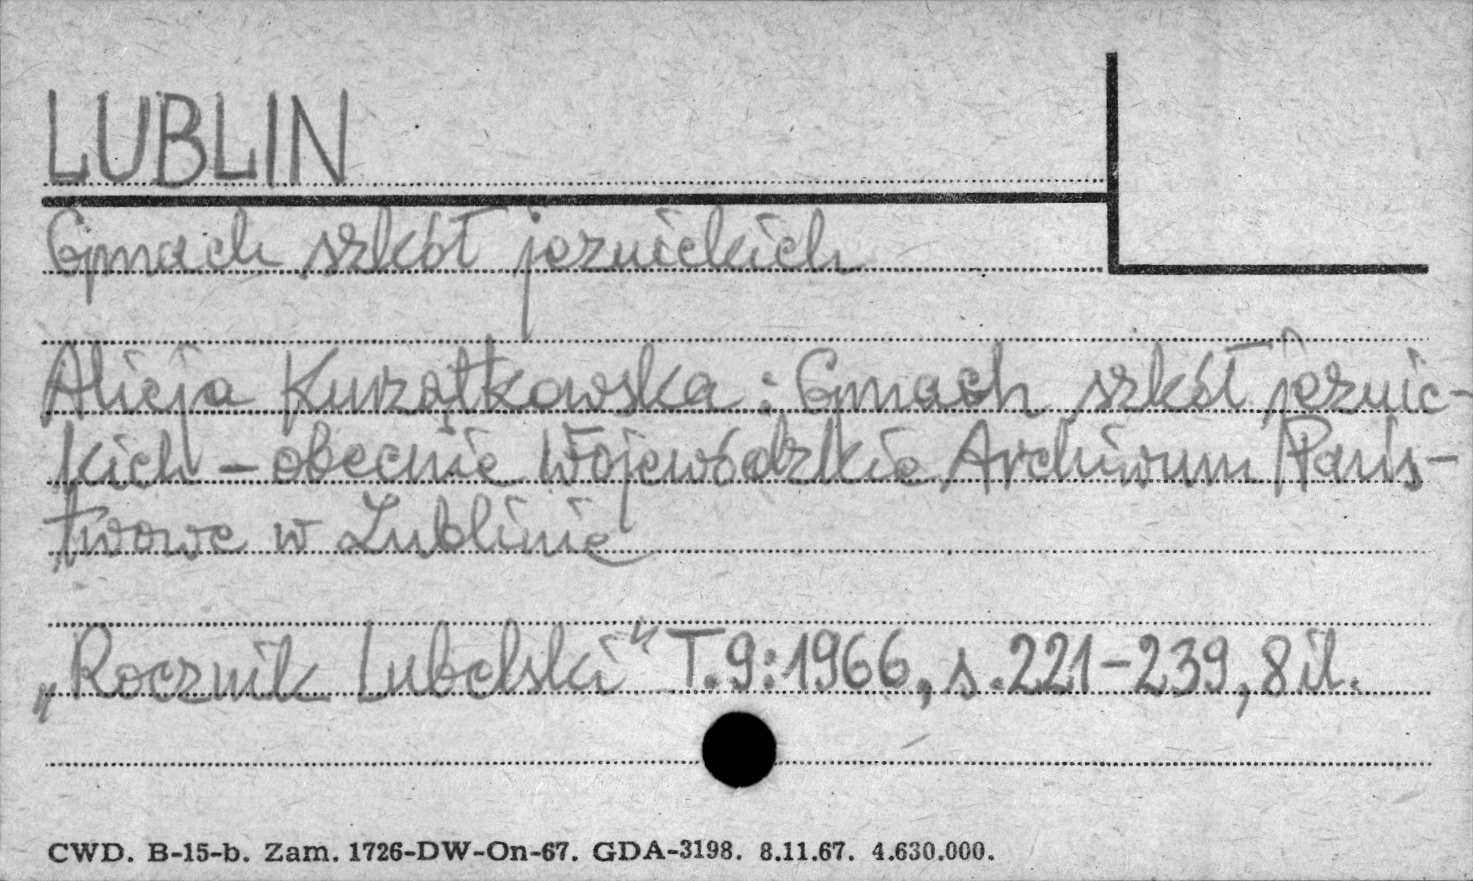 LUBLIN
Gmach szkół jezuickich
Alicja Kurzątkowska: Gmach szkół jezuic-
kich – obecnie Wojewódzkie Archiwum Pańs-
twowe w Lublinie
„Rocznik Lubelski" T.9:1966, s.221-239, 8 il.
CWD. B-15-b. Zam. 1726-DW-On-67. GDA-3198. 8.11.67. 4.630.000.